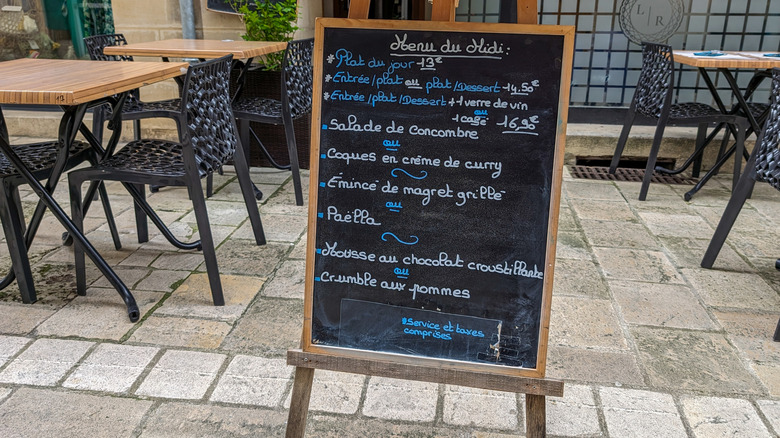 Menu du Midi :
* Plat du jour 13€
* Entrée/plat ou plat/Dessert 14,50€
* Entrée/plat/Dessert + 1 verre de vin
ou
1 café 16,90€
Salade de Concombre
ou
Coques en crème de curry
Émincé de magret grillé
ou
Paëlla
Mousse au chocolat croustillante
ou
Crumble aux pommes
*service et taxes
comprises
L R
13